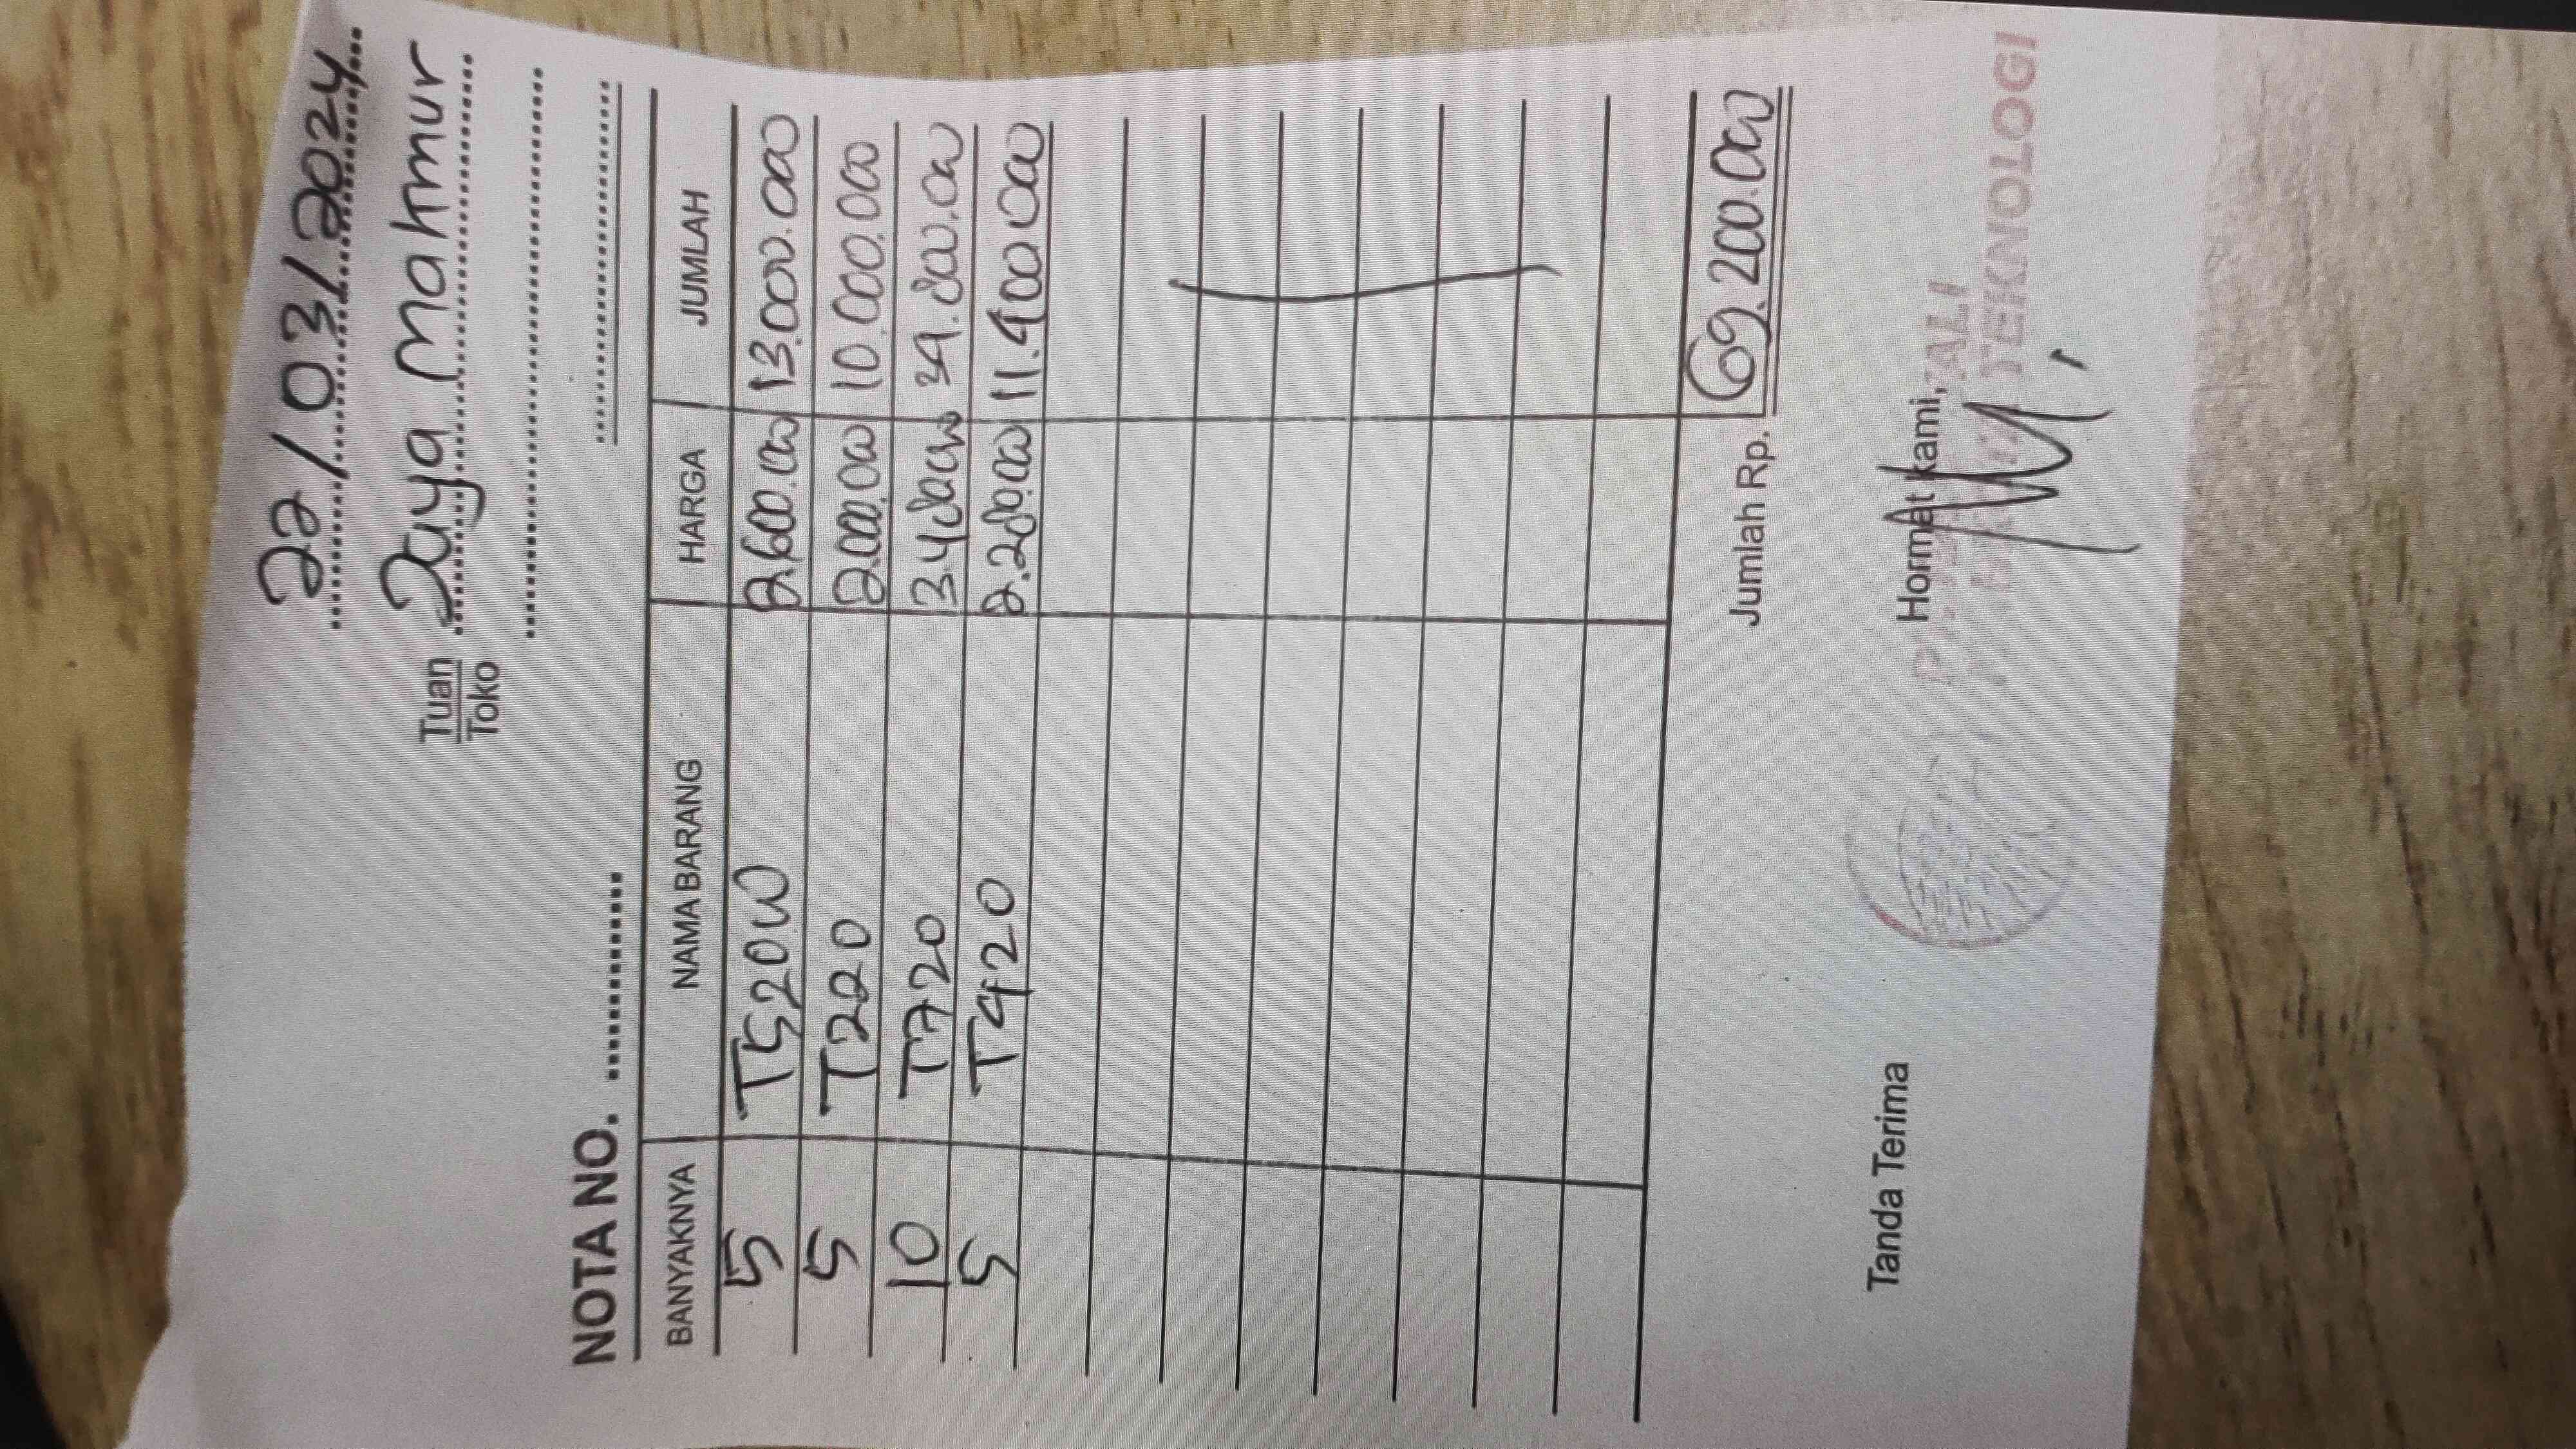 22/03/2024
Tuan Jaya Mahmur
Toko
NOTA NO.
BANYAKNYA NAMA BARANG HARGA JUMLAH
5 T520W 2.600.000 13.000.000
5 T220 2.000.000 10.000.000
10 T720 3.480.000 34.800.000
5 T420 2.280.000 11.400.000
Jumlah Rp. 69.200.000
Tanda Terima Hormat kami,
PT. ALI
TEKNOLOGI